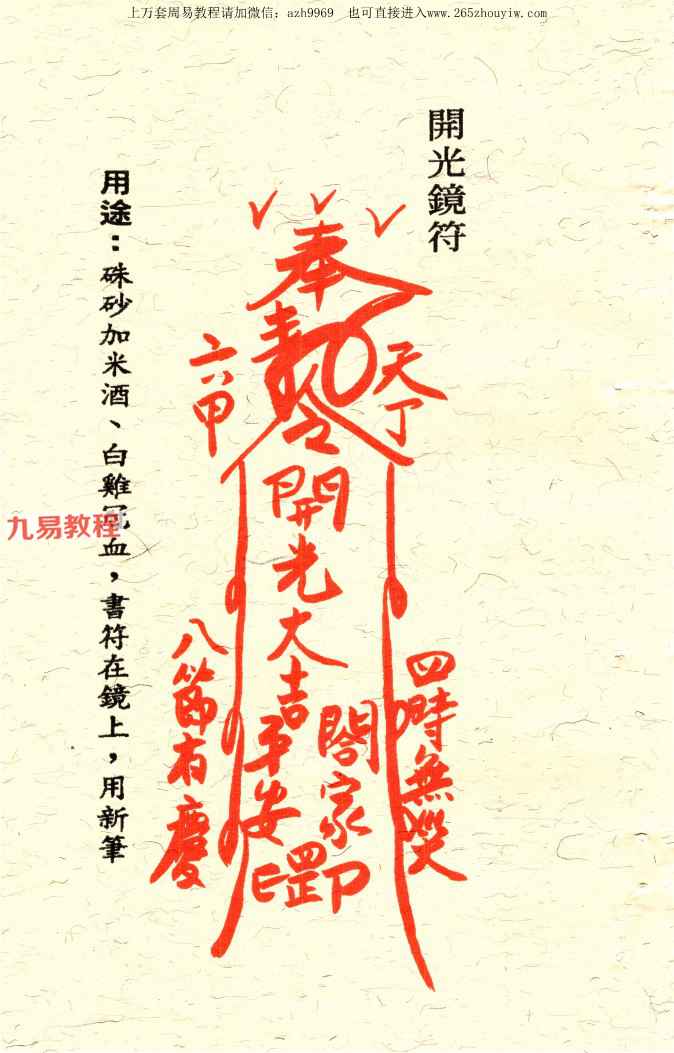 上万套周易教程请加微信：azh9969　也可直接进入www.265zhouyiw.com
開光鏡符
奉
令
天丁
六甲
開光大吉
四時無災
八節有慶
閤家
平安
罡印
用途：硃砂加米酒、白雞冠血，書符在鏡上，用新筆
九易教程